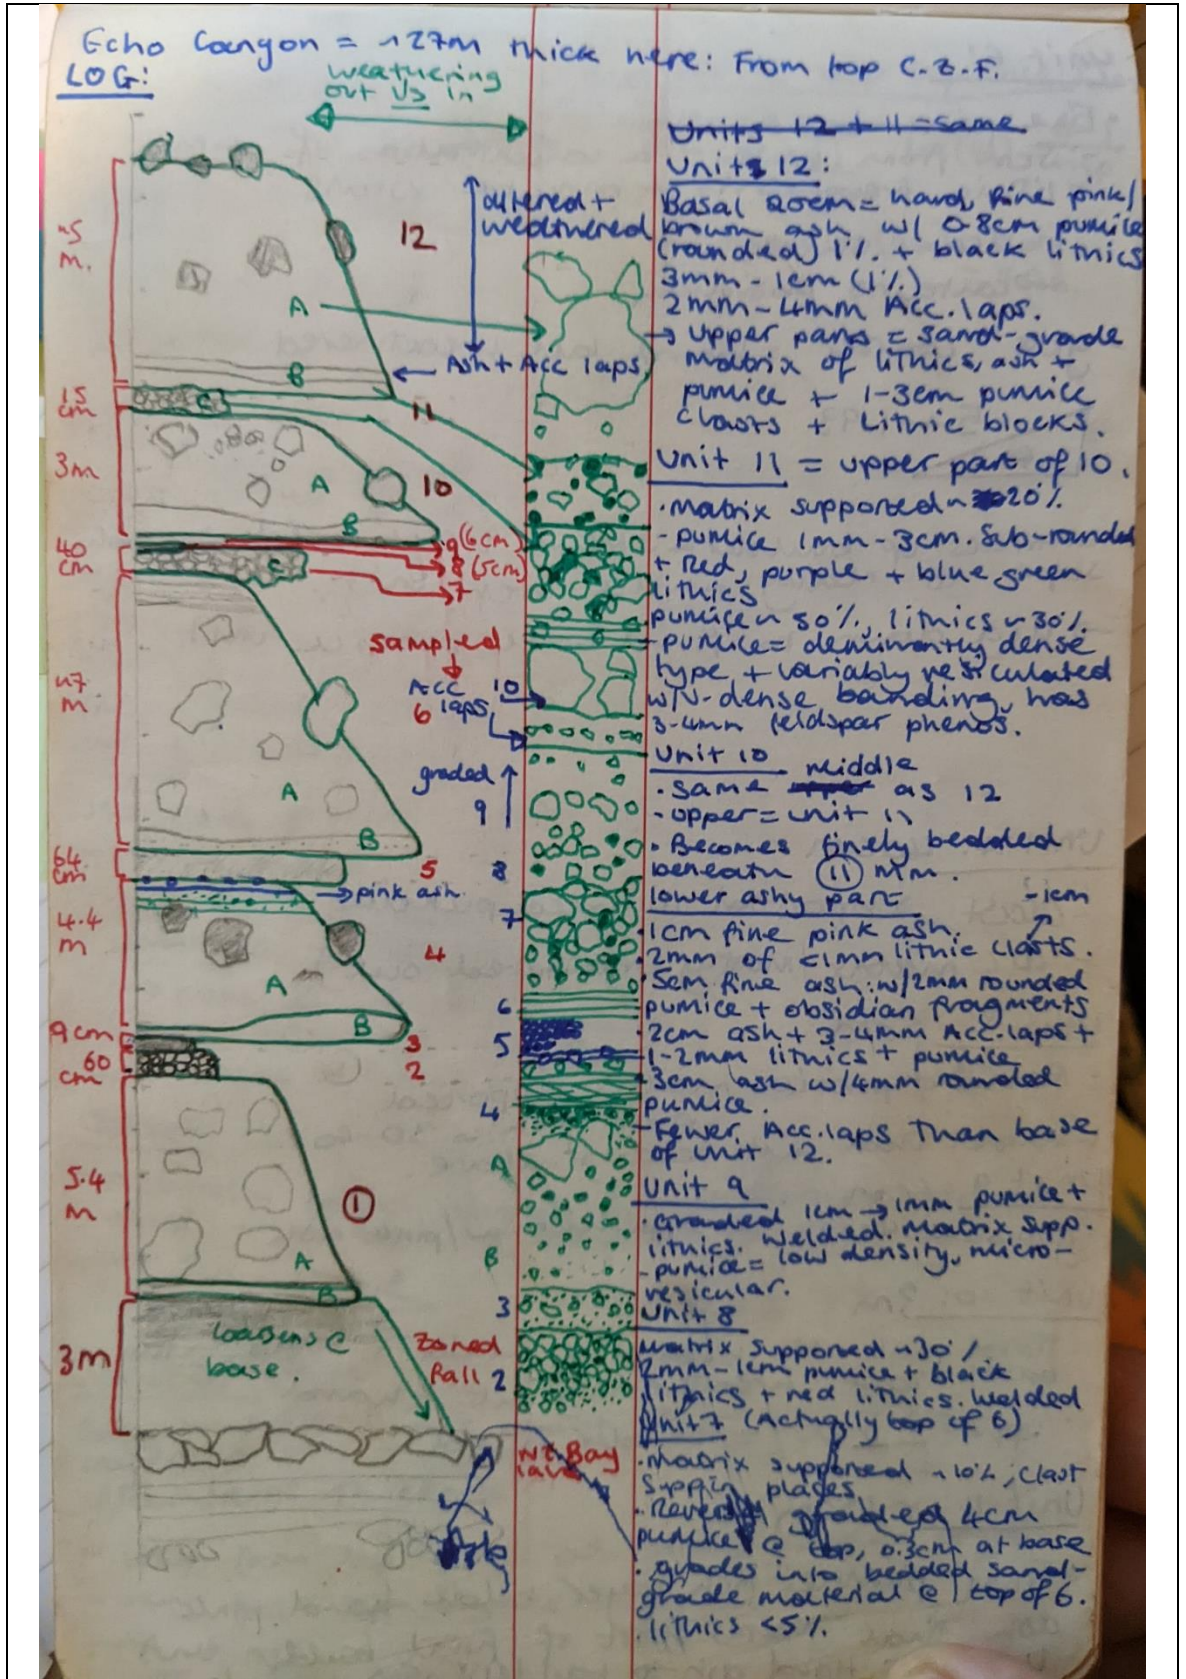 Echo Canyon = ~27m thick here: From top C.Z.F.
LOG:
weathering
out vs in
~5
m.
12
A
B
altered +
weathered
← Ash + Acc laps
15
cm
C
11
3m
A
10
B
40
cm
9 (6cm)
8 (5cm)
7
C
~7
m
sampled
Acc
laps
10
6
graded
9
A
B
64
cm
5
8
→ pink ash
4.4
m
7
4
A
B
6
9cm
3
5
60
cm
2
4
5.4
m
A
1
A
B
B
3
3m
loosens @
base.
zoned
fall
2
NZ Bay
lava
Units 12 + 11 = same
Units 12:
Basal 20cm = hard, fine pink/
brown ash, w/ 0.8cm pumice
(rounded) 1% + black lithics
3mm - 1cm (1%)
2mm - 4mm Acc. laps.
→ upper parts = sand-grade
matrix of lithics, ash +
pumice + 1-3cm pumice
clasts + lithic blocks.
Unit 11 = upper part of 10.
· matrix supported ~ 20%
- pumice 1mm - 3cm. Sub-rounded
+ Red, purple + blue green
lithics
pumice ~ 50%, lithics ~ 30%
- pumice = dominantly dense
type + variably vesiculated
w/ v-dense banding, has
3-4mm feldspar phenos.
Unit 10
middle
· same as 12
- upper = unit 11
· Becomes finely bedded
beneath 11 mm.
lower ashy part
-1cm
· 1cm fine pink ash.
· 2mm of <1mm lithic clasts.
· 5cm fine ash: w/ 2mm rounded
pumice + obsidian fragments
· 2cm ash + 3-4mm Acc. laps +
1-2mm lithics + pumice
· 3cm ash w/ 4mm rounded
pumice.
- Fewer Acc. laps than base
of unit 12.
Unit 9
· Graded 1cm → 1mm pumice +
lithics. welded. matrix supp.
- pumice = low density, micro-
vesicular.
Unit 8
Matrix supported ~30%
2mm - 1cm pumice + black
lithics + red lithics. welded
Unit 7 (Actually top of 6)
· Matrix supported ~10%, clast
supp in places
· Reverse graded 4cm
pumice @ top, 0.3cm at base
· grades into bedded sand-
grade material @ top of 6.
· lithics <5%.